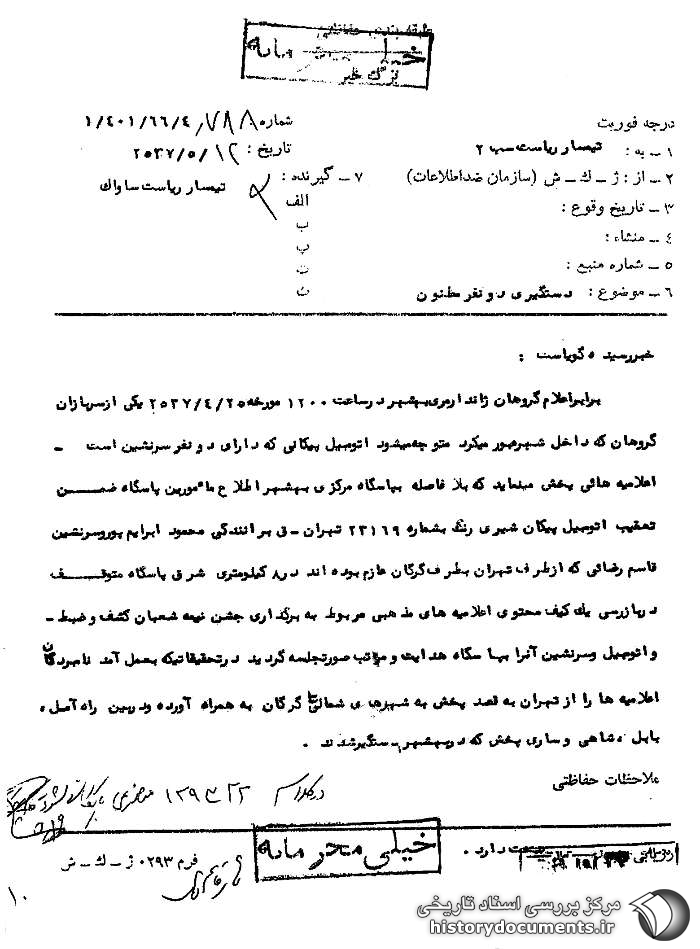 طبقه بندی حفاظتی
خیلی محرمانه
برگ خبر
درجه فوریت
شماره ۱/۴۰۱/۶۶/۴/۷۸۸
۱ ـ به : تیمسار ریاست سب ۲
تاریخ : ۲۵۳۷/۵/۱۲
۲ ـ از : ژ ـ ك ـ ش (سازمان ضداطلاعات)
۷ ـ گیرنده : تیمسار ریاست ساواك
۳ ـ تاریخ وقوع :
الف
۴ ـ منشاء :
ب
۵ ـ شماره منبع :
پ
ت
۶ ـ موضوع : دستگیری دو نفر مظنون
ث
خبر رسیده گویاست :
برابر اعلام گروهان ژاندارمری بهشهر در ساعت ۱۲۰۰ مورخه ۲۵۳۷/۴/۲۵ یکی از سربازان
گروهان که داخل شهر عبور میکرد متوجه میشود اتومبیل پیکانی که دارای دو نفر سرنشین است ـ
اعلامیه هائی پخش مینماید که بلا فاصله بپاسگاه مرکزی بهشهر اطلاع مأمورین پاسگاه ضمــــن
تعقیب اتومبیل پیکان شیری رنگ بشماره ۲۳۱۶۹ تهران ـ ق برانندگی محمود ابراهیم پور و سرنشین
قاسم رضائی که از طرف تهران بطرف گرگان عازم بوده اند در ۸ کیلومتری شرق پاسگاه متوقــــف
در بازرسی یك کیف محتوی اعلامیه های مذهبی مربوط به برگذاری جشن نیمه شعبان کشف و ضبط ـ
و اتومبیل و سرنشین آنرا بپاسگاه هدایت و مراتب صورتجلسه گردید در تحقیقاتیکه بعمل آمد نامبردگان
اعلامیه ها را از تهران به قصد پخش به شهرهای شمالی تا گرگان به همراه آورده و در بین راه آمل ،
بابل ، شاهی و ساری پخش که در بهشهر دستگیر شدند .
ملاحظات حفاظتی
در کلاسه ۱۲۹۳۲۲
خیلی محرمانه
دارد .
فرم ۰۲۹۳ ژ ـ ك ـ ش
۱۰
مرکز بررسی اسناد تاریخی
historydocuments.ir